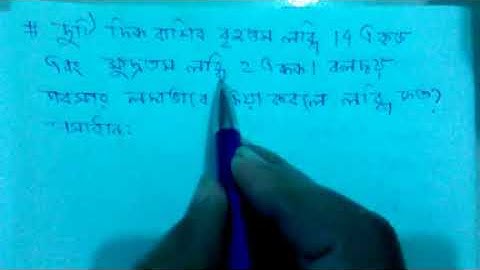 # দুটি দিক রাশির বৃহত্তম লব্ধি 14 একক
এবং ক্ষুদ্রতম লব্ধি 2 একক। বলদ্বয়
পরস্পর লম্বভাবে ক্রিয়া করলে লব্ধি কত?
সমাধান: